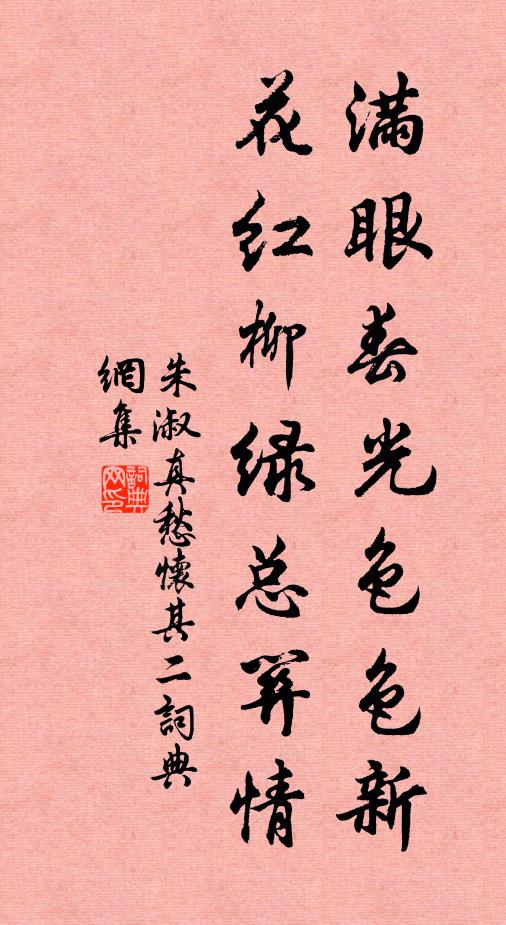 满眼春光色色新
花红柳绿总关情
朱淑真愁懷其二詞典
網集
詞典網印